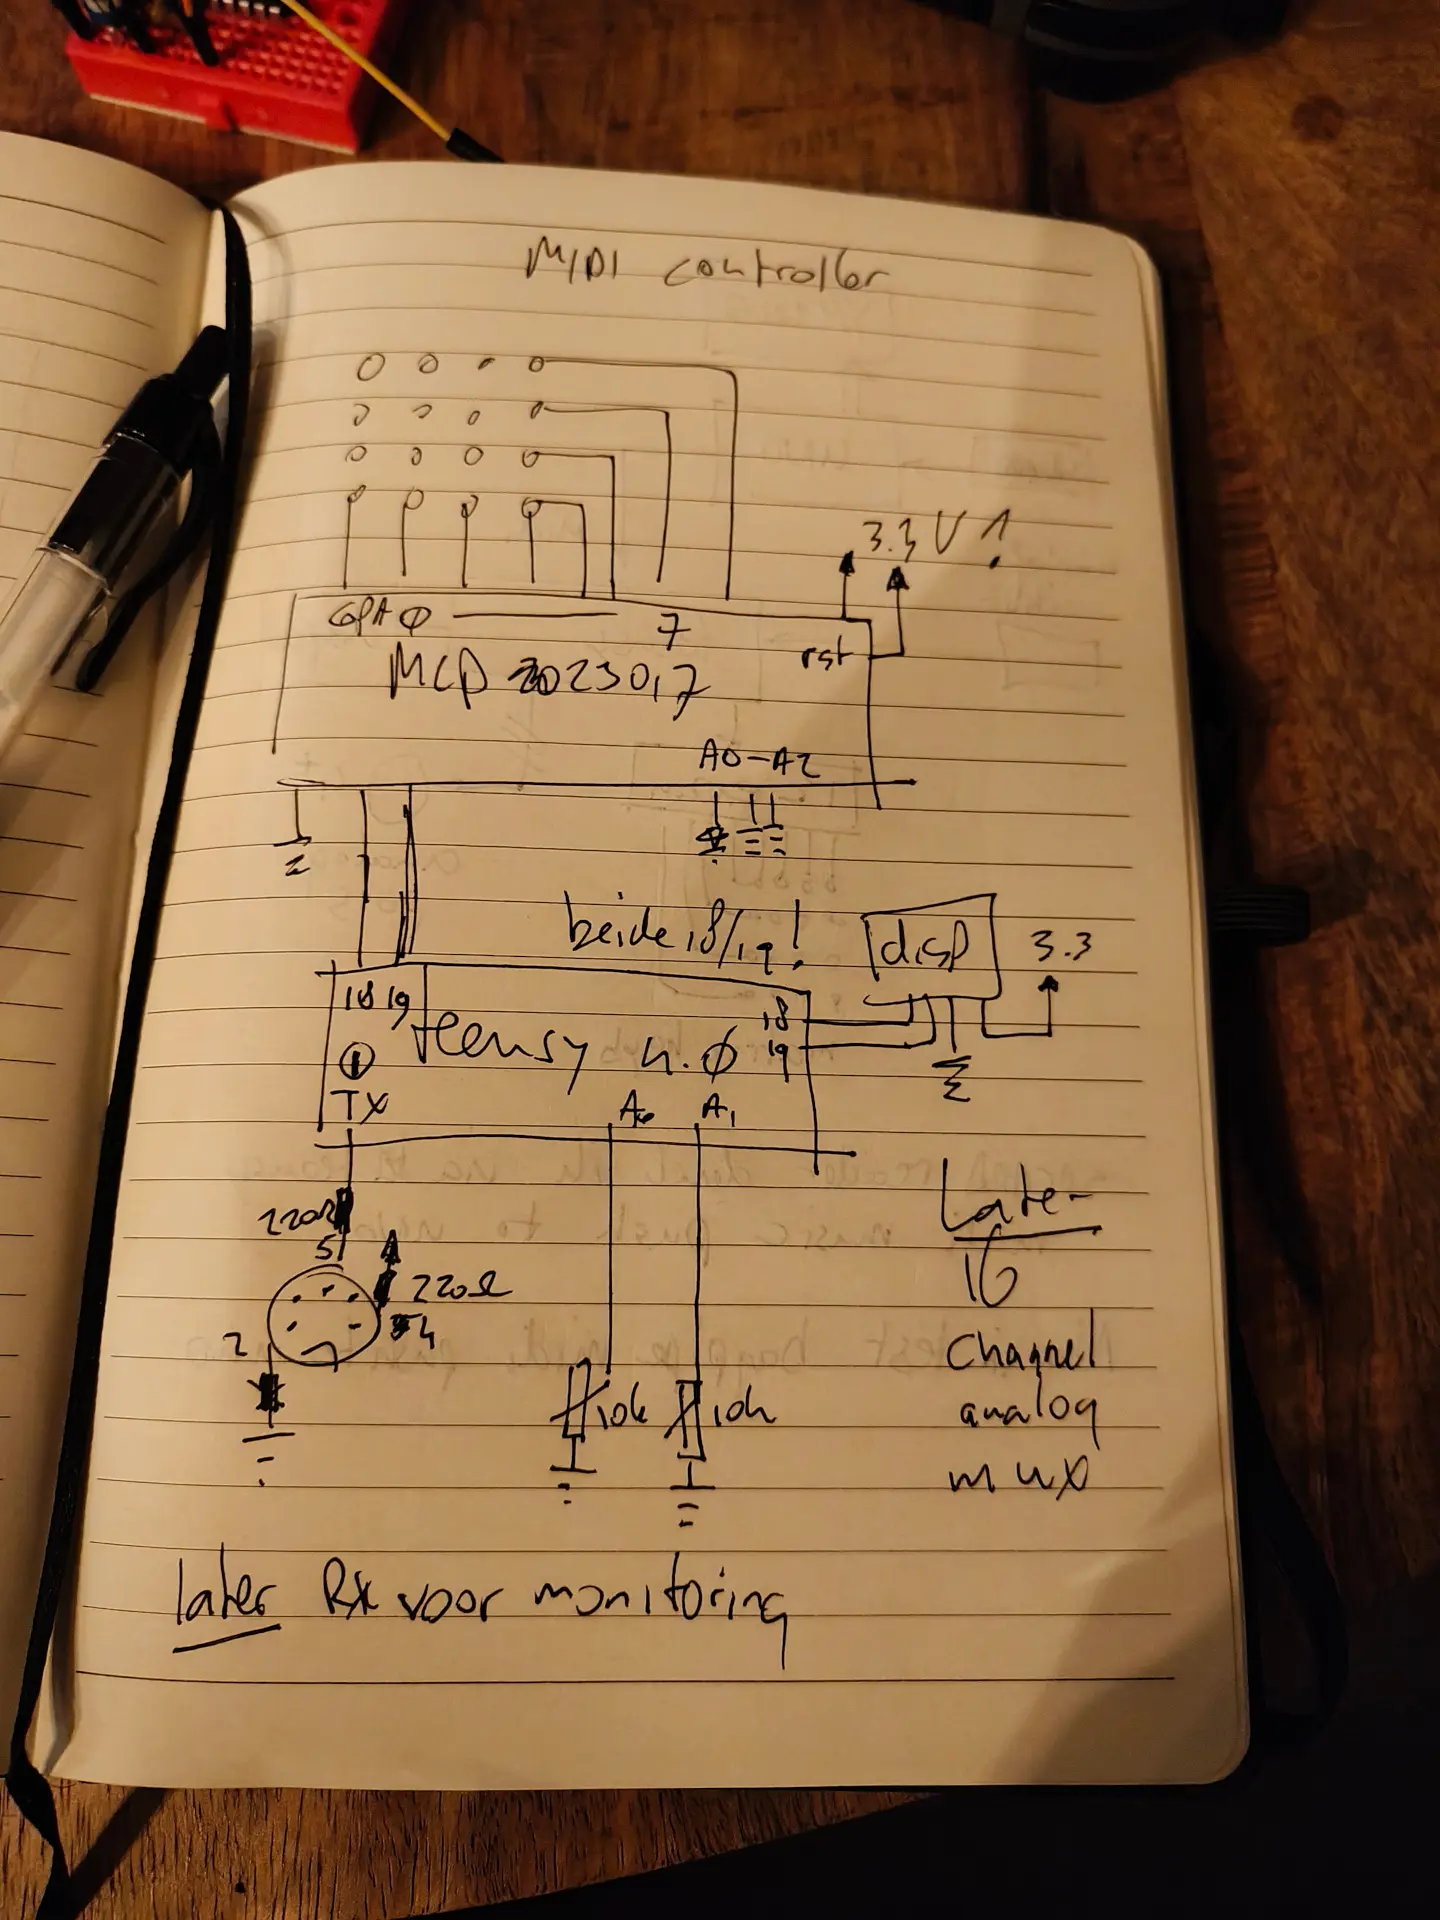 MIDI controller
3.3V !
GPA 0 — 7
rst
MCP 23017
A0-A2
beide 18/19!
disp
3.3
18 19
18
teensy 4.0
19
1
TX
A0
A1
220Ω
5
220Ω
4
2
10k
10k
Later
16
Channel
analog
mux
later Rx voor monitoring